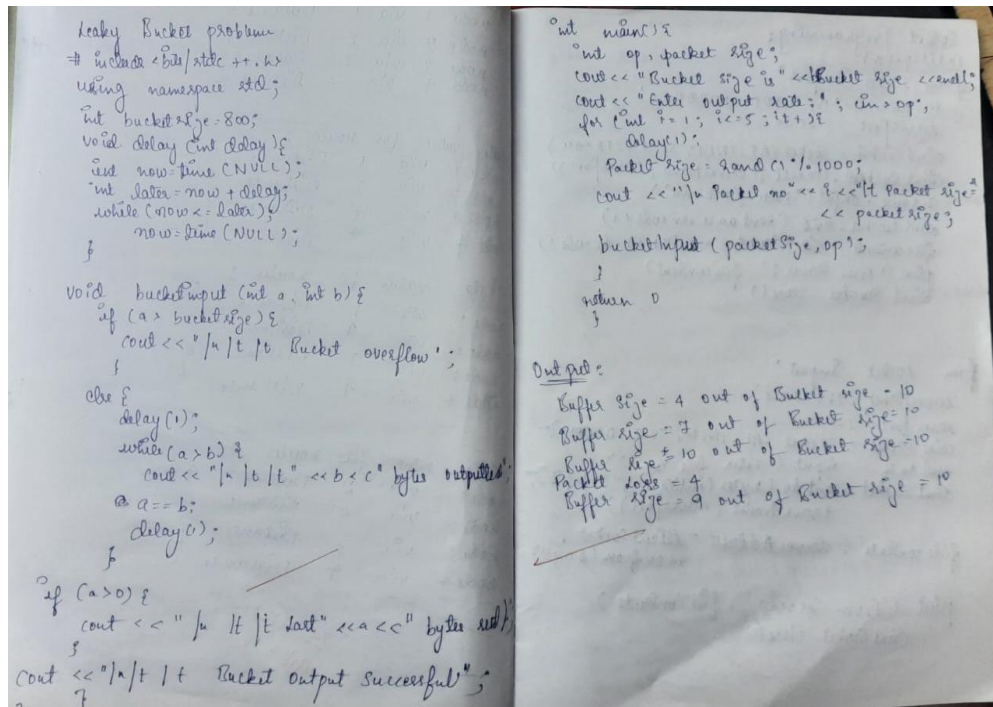 Leaky Bucket problem
# include <bits/stdc ++.h>
using namespace std;
int bucket size = 800;
void delay (int delay){
int now = time (NULL);
int later = now + delay;
while (now <= later);
now = time (NULL);
}
void bucketinput (int a, int b) {
if (a > bucket size) {
cout << "/n /t /t Bucket overflow";
}
else {
delay (1);
while (a > b) {
cout << "/n /t /t" << b < c" bytes outputted";
a == b;
delay (1);
}
if (a > 0) {
cout << "/n /t /t Last" << a < c" bytes sent);
}
cout << "/n /t /t Bucket Output Successful";
}
int main() {
int op, packet size;
cout << "Bucket size is" << Bucket size << endl;
cout << "Enter output rate: "; cin > op;
for (int i = 1; i <= 5; i++) {
delay(1);
Packet size = rand () % 1000;
cout << "/n Packet no" << i << "/t Packet size ="
<< packet size;
bucketInput (packet Size, op);
}
return 0
}
Output:
Buffer Size = 4 out of Bucket size = 10
Buffer size = 7 out of Bucket size = 10
Buffer size = 10 out of Bucket size = 10
Packet Loss = 4
Buffer size = 9 out of Bucket size = 10